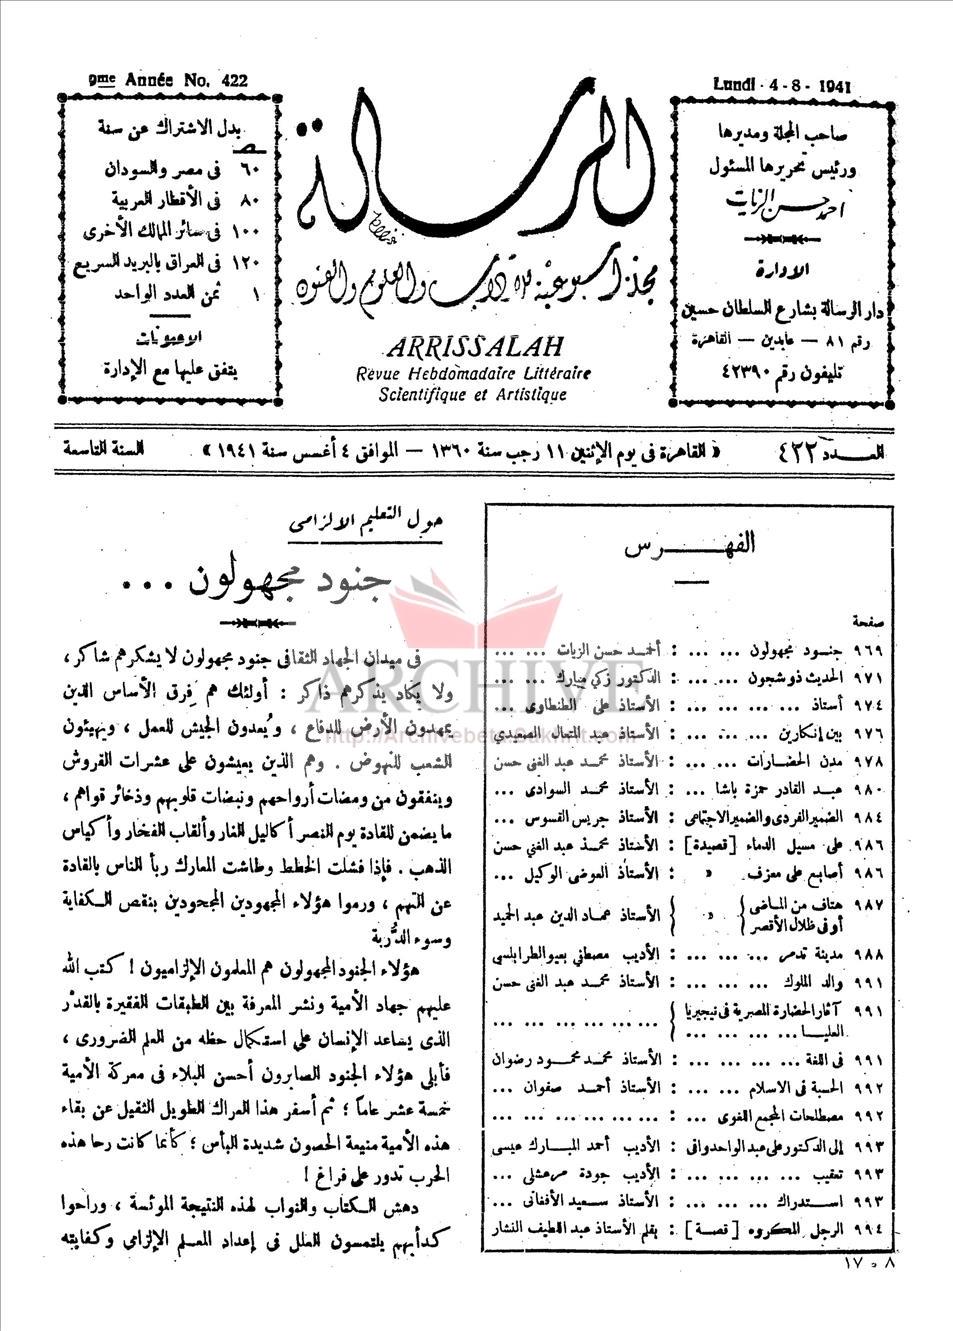 9me Année No. 422
Lundi - 4 - 8 - 1941
صاحب المجلة ومديرها
ورئيس تحريرها المسئول
احمد حسن الزيات
الادارة
دار الرسالة بشارع السلطان حسين
رقم ٨١ — عابدين — القاهرة
تليفون رقم ٤٢٣٩٠
الرسالة
مجلة اسبوعية للآداب والعلوم والفنون
ARRISSALAH
Revue Hebdomadaire Littéraire
Scientifique et Artistique
بدل الاشتراك عن سنة
٦٠ فى مصر والسودان
٨٠ فى الأقطار العربية
١٠٠ فى سائر الممالك الأخرى
١٢٠ فى العراق بالبريد السريع
١ ثمن العدد الواحد
الاعلانات
يتفق عليها مع الإدارة
العـــدد ٤٢٢
« القاهرة فى يوم الإثنين ١١ رجب سنة ١٣٦٠ — الموافق ٤ أغسس سنة ١٩٤١ »
السنة التاسعة
الفهـــرس
صفحة
٩٦٩ جنـود مجهولون ... ... : أحمـد حسن الزيات ... ...
٩٧١ الحديث ذو شجون ... ... : الدكتور زكي مبارك ... ...
٩٧٤ أستاذ ... ... ... ... : الأستاذ على الطنطاوى ...
٩٧٦ بين إنكارين ... ... ... : الأستاذ عبد المتعال الصعيدي
٩٧٨ مدن الحضارات ... ... : الأستاذ محمد عبد الغنى حسن
٩٨٠ عبـد القادر حمزة باشا ... : الأستاذ محمد السوادى ...
٩٨٤ الضمير الفردى والضمير الاجتماعى : الأستاذ جريس القسوس ...
٩٨٦ على مسيل الدماء [ قصيدة ] : الأستاذ محمد عبد الغني حسن
٩٨٦ أصابع على معزف « : الأستاذ العوضى الوكيل ...
٩٨٧ هتاف من الماضى
أو فى ظلال الأقصر
« الأستاذ عماد الدين عبد الحميد
٩٨٨ مدينة تدمر ... ... ... : الأديب مصطفي بعيو الطرابلسي
٩٩١ والد الملوك ... ... ... : الأستاذ محمـد عبد الغنى حسن
٩٩١ آثار الحضارة المصرية فى نيجيريا
العليـا ... ... ... ... ... ... ...
٩٩١ فى اللغة ... ... ... ... : الأستاذ محمـد محمـود رضوان
٩٩٢ الحسبة فى الاسلام ... ... : الأستاذ أحمـد صفوان ...
٩٩٢ مصطلحات المجمع اللغوى ... : ... ... ... ...
٩٩٣ إلى الدكتور على عبد الواحد وافى : الأديب أحمد المبـارك عيسى
٩٩٣ تعقيب ... ... ... ... : الأديب جودة مرعشلى ...
٩٩٣ اسـتدراك ... ... ... : الأستاذ سـعيد الأفغانى ...
٩٩٤ الرجل المكروه [ قصة ] : بقلم الأستاذ عبد اللطيف النشار
٨ - ١٧
حول التعليم الالزامى
جنود مجهولون ...
فى ميدان الجهاد الثقافى جنود مجهولون لا يشكرهم شاكر ،
ولا يكاد يذكرهم ذاكر : أولئك هم فِرق الأساس الذين
يمهدون الأرض للدفاع ، ويُعدون الجيش للعمل ، ويهيئون
الشعب للنهوض . وهم الذين يعيشون على عشرات القروش
وينفقون من ومضات أرواحهم ونبضات قلوبهم وذخائر قواهم ،
ما يضمن للقادة يوم النصر أكاليل الغار وألقاب الفخار وأكياس
الذهب . فإذا فشلت الخطط وطاشت المعارك ربأ الناس بالقادة
عن التهم ، ورموا هؤلاء المجهودين المجحودين بنقص الكفاية
وسوء الدُّربة
هؤلاء الجنود المجهولون هم المعلمون الإلزاميون ! كتب الله
عليهم جهاد الأمية ونشر المعرفة بين الطبقات الفقيرة بالقدْر
الذى يساعد الإنسان على استكمال حظه من العلم الضرورى ،
فأبلى هؤلاء الجنود الصابرون أحسن البلاء فى معركة الأمية
خمسة عشر عاماً ؛ ثم أسفر هذا العراك الطويل الثقيل عن بقاء
هذه الأمية منيعة الحصون شديدة البأس ؛ كأنما كانت رحا هذه
الحرب تدور على فراغ !
دهش الكتاب والنواب لهذه النتيجة الموئسة ، وراحوا
كدأبهم يلتمسون العلل فى إعداد المعلم الإلزامي وكفايته
ARCHIVE